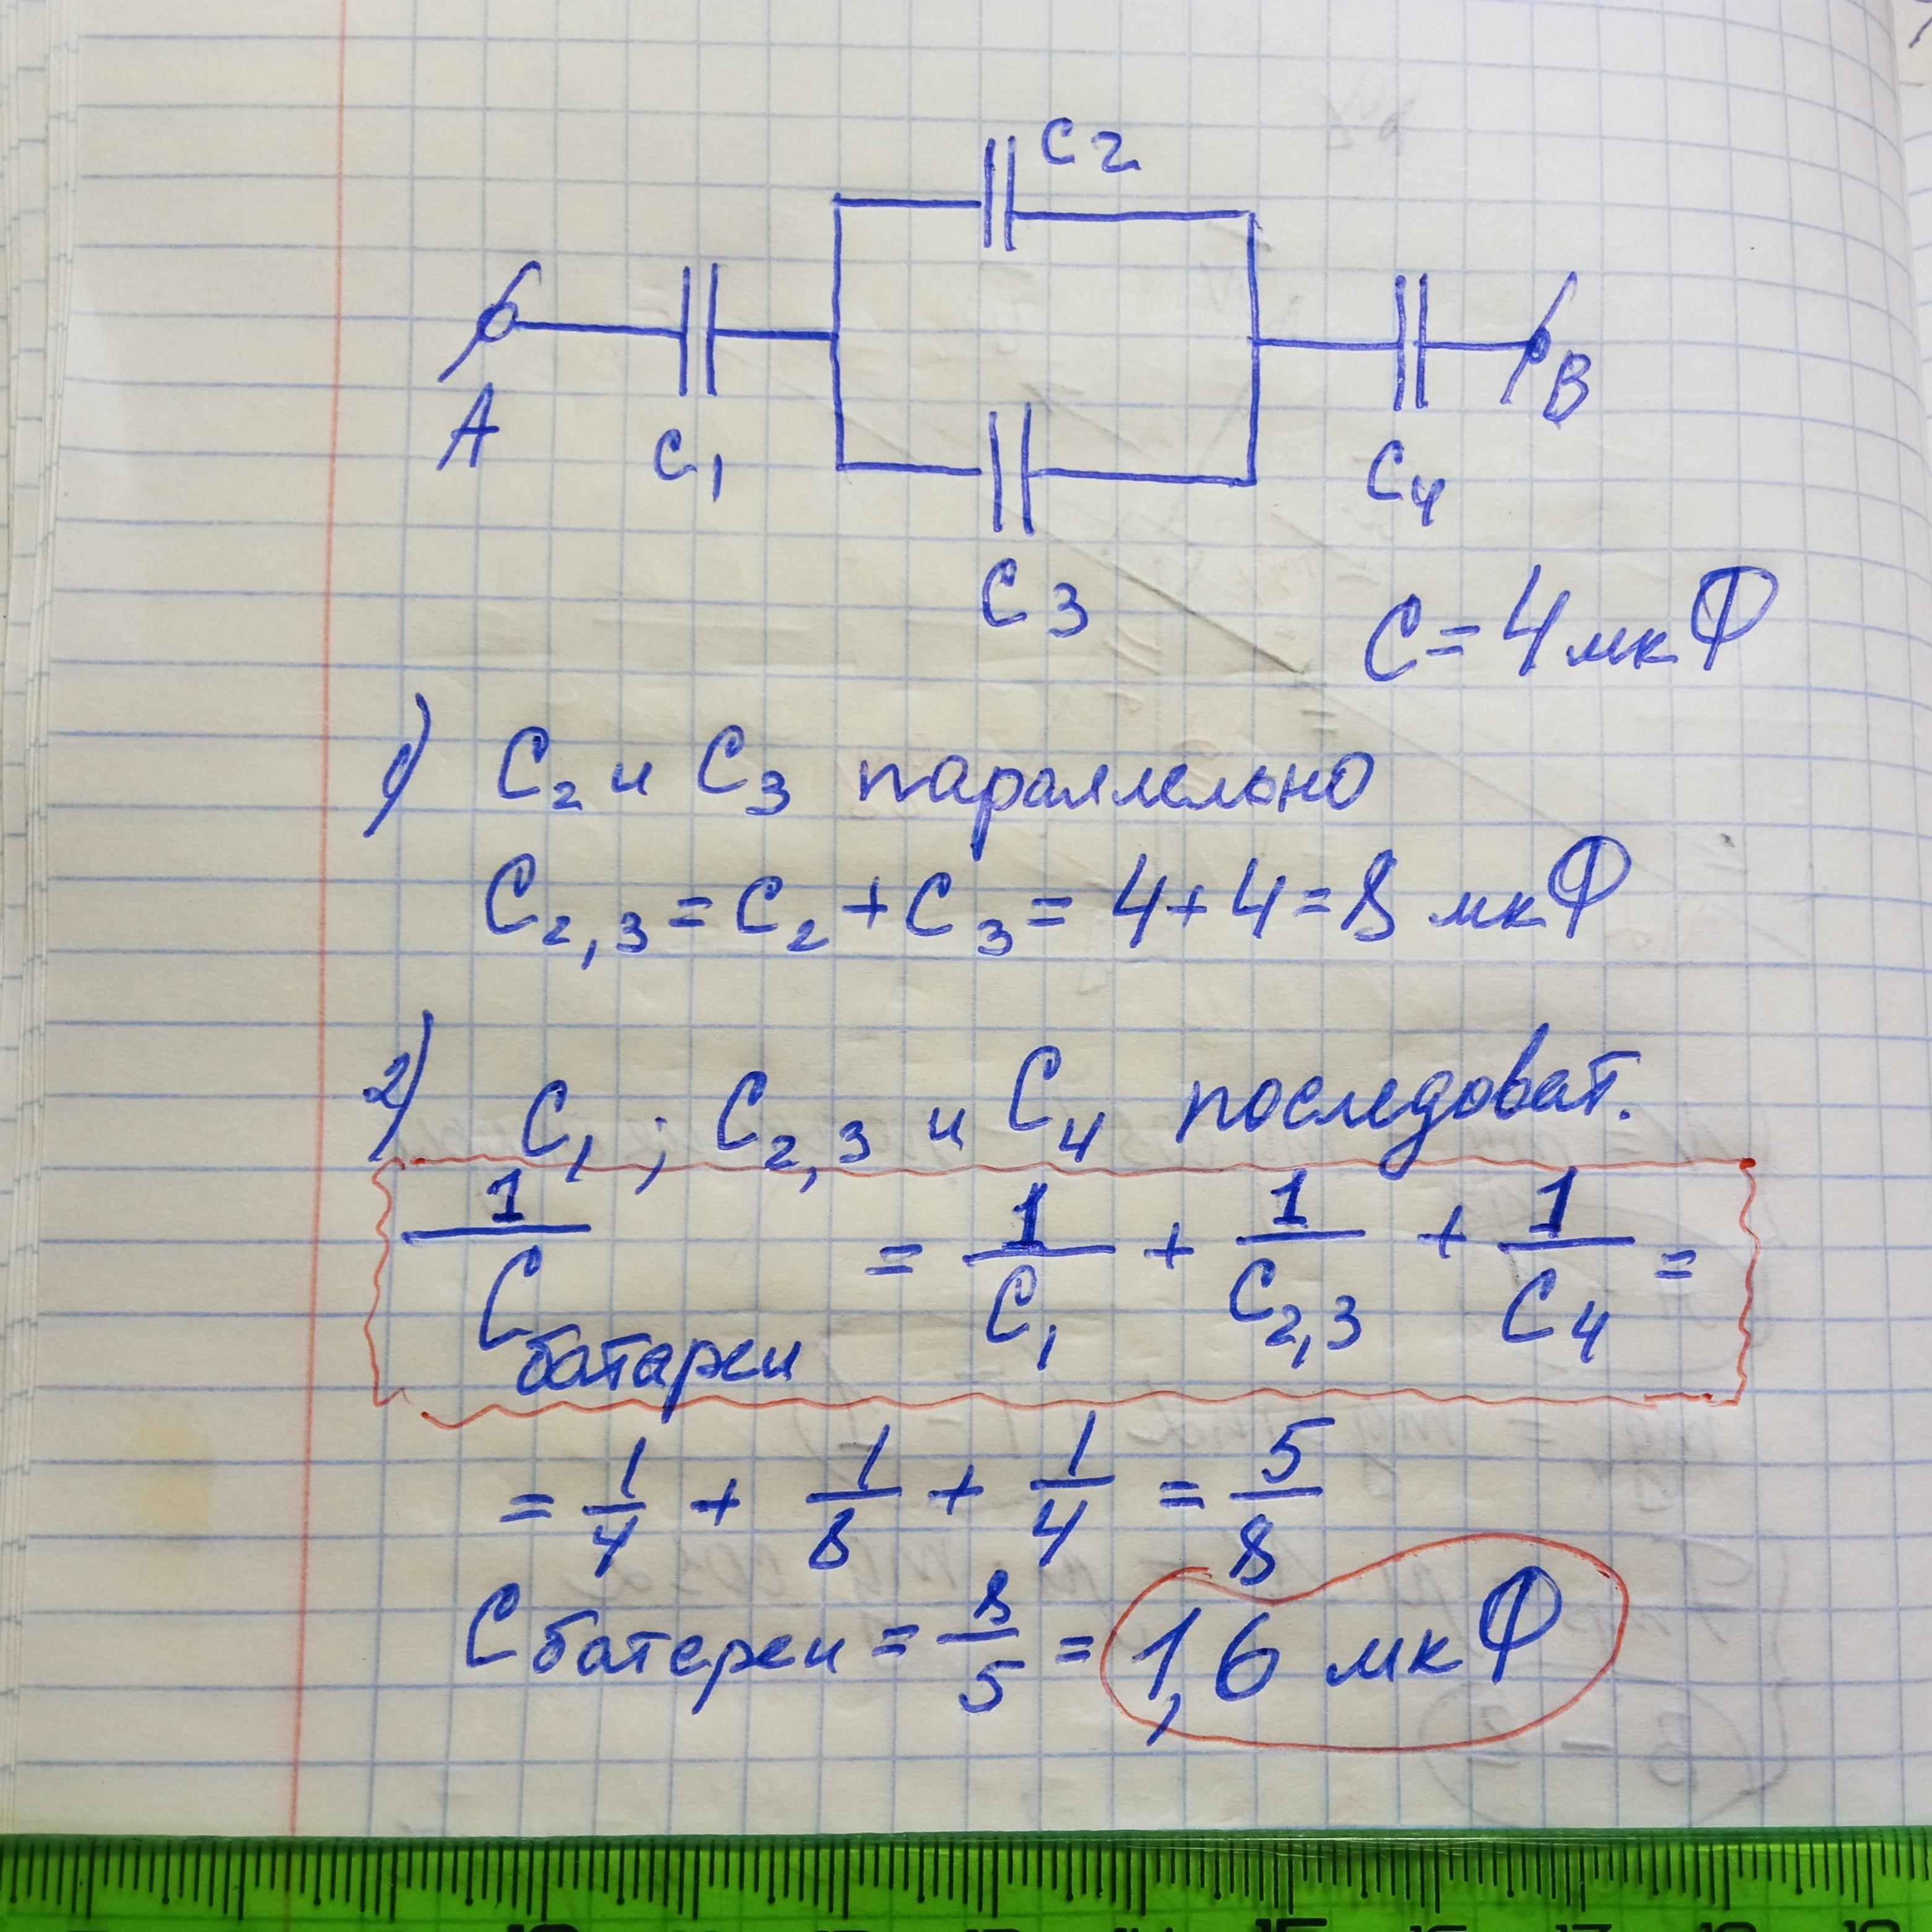 C2
A
C1
C4
B
C3
C = 4 мкФ
1) C2 и C3 параллельно
C2,3 = C2 + C3 = 4 + 4 = 8 мкФ
2) C1 ; C2,3 и C4 последоват.
1/Cбатареи = 1/C1 + 1/C2,3 + 1/C4 =
= 1/4 + 1/8 + 1/4 = 5/8
Cбатереи = 8/5 = 1,6 мкФ